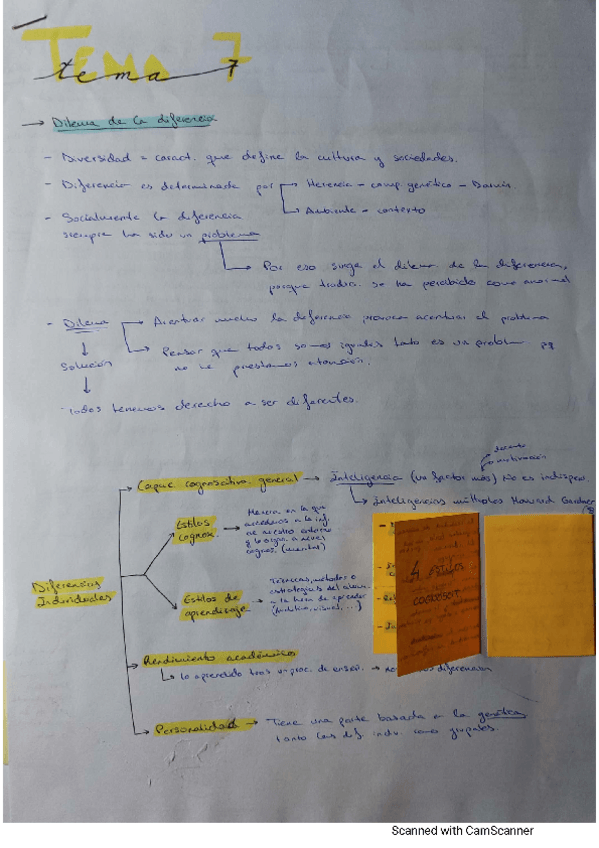 Tema 7
tema 7
→ Dilema de la diferencia
- Diversidad = caract. que define la cultura y sociedades.
- Diferencia es determinada por → Herencia - comp. genético - Darwin.
→ Ambiente - contexto
- Socialmente la diferencia
siempre ha sido un problema
→ Por eso surge el dilema de la diferencia,
porque tradic. se ha percibido como anormal
- Dilema → Acentuar mucho la diferencia provoca acentuar el problema
→ Pensar que todos somos iguales tmb es un problem pq
no le prestamos atención.
↓
Solución
↓
- Todos tenemos derecho a ser diferentes.
Diferencias
Individuales
Capac. cognoscitiva general → Inteligencia (un factor más) No es indispen.
motivación
→ Inteligencias múltiples Howard Gardner
(8
Estilos
cognosc. → Manera en la que
accedemos a la inf.
de nuestro entorno
y la organ. a nivel
cognos. (mental)
Estilos de
aprendizaje → Técnicas, métodos o
estrategias del alum.
a la hora de aprender
(auditivo, visual, ...)
4 ESTILOS
COGNOSCIT.
Rendimiento académico
→ lo aprendido tras un proc. de enseñ. → diferencian
Personalidad → Tiene una parte basada en la genética
tanto las dif. indiv. como grupales.
Scanned with CamScanner